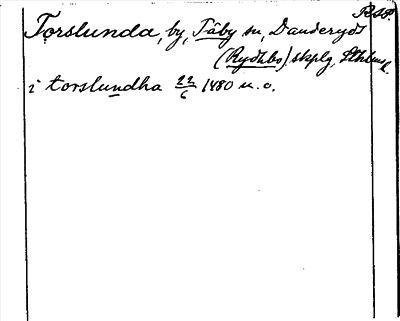 RAP.
Torslunda, by, Täby sn, Danderyds
(Rydhbo) skplg, Sthlms l.
i torslundha 22/6 1480 u. o.